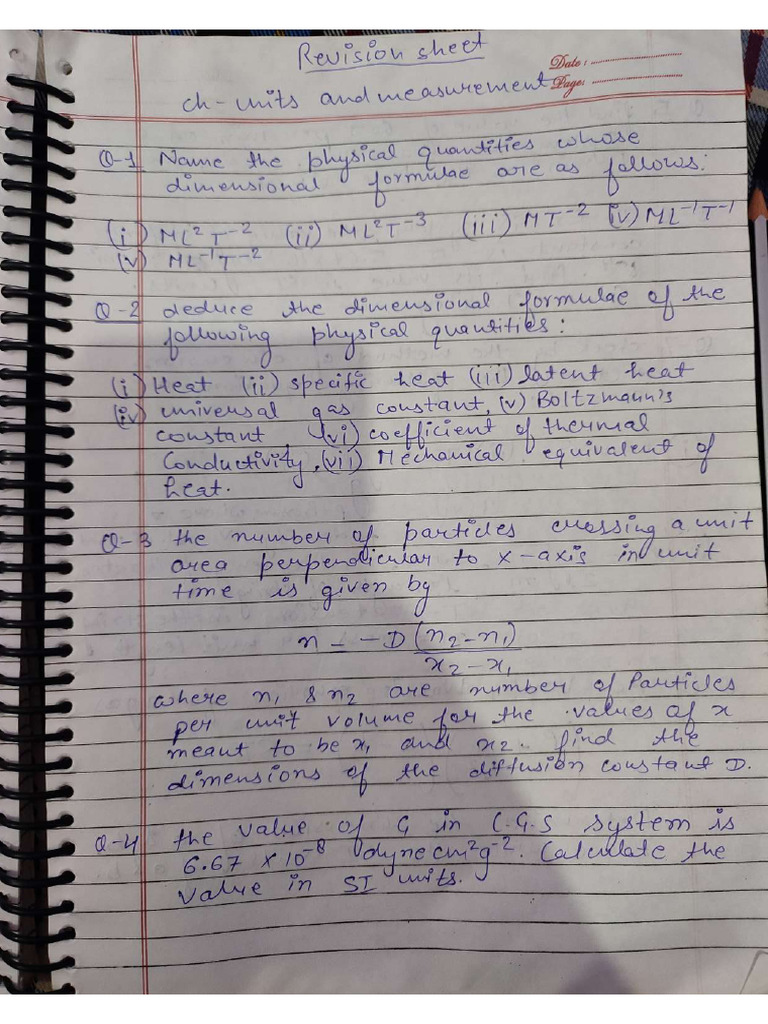 Revision sheet
Date :
ch-units and measurement
Page:
Q-1 Name the physical quantities whose
dimensional formulae are as follows:
(i) ML²T⁻² (ii) ML²T⁻³ (iii) MT⁻² (iv) ML⁻¹T⁻¹
(v) ML⁻¹T⁻²
Q-2 deduce the dimensional formulae of the
following physical quantities:
(i) Heat (ii) specific heat (iii) latent heat
(iv) universal gas constant, (v) Boltzmann's
constant, (vi) coefficient of thermal
Conductivity, (vii) Mechanical equivalent of
heat.
Q-3 the number of particles crossing a unit
area perpendicular to x-axis in unit
time is given by
n = -D (n₂-n₁)
x₂-x₁
where n₁ & n₂ are number of Particles
per unit volume for the values of x
meant to be x₁ and x₂. find the
dimensions of the diffusion constant D.
Q-4 the value of G in C.G.S system is
6.67 × 10⁻⁸ dyne cm²g⁻². Calculate the
value in SI units.